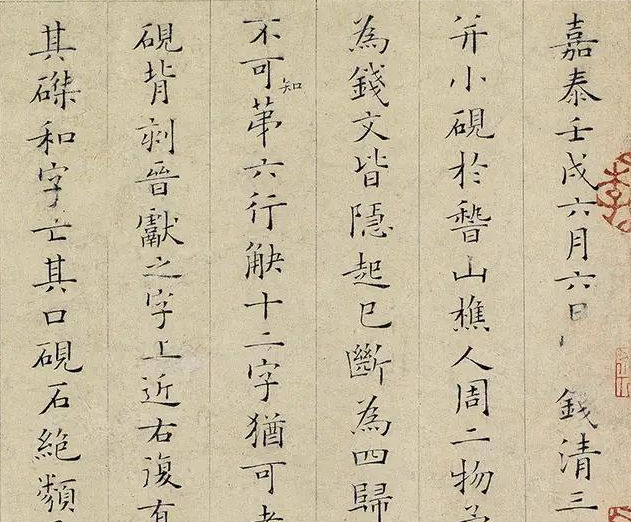 嘉泰壬戌六月六日 錢清三
并小硯於稽山樵人周二物
為錢文皆隱起已斷為四歸
不可知第六行觖十二字猶可考
硯背刻晉獻之字上近右復有
其磔和字亡其口硯石絕類